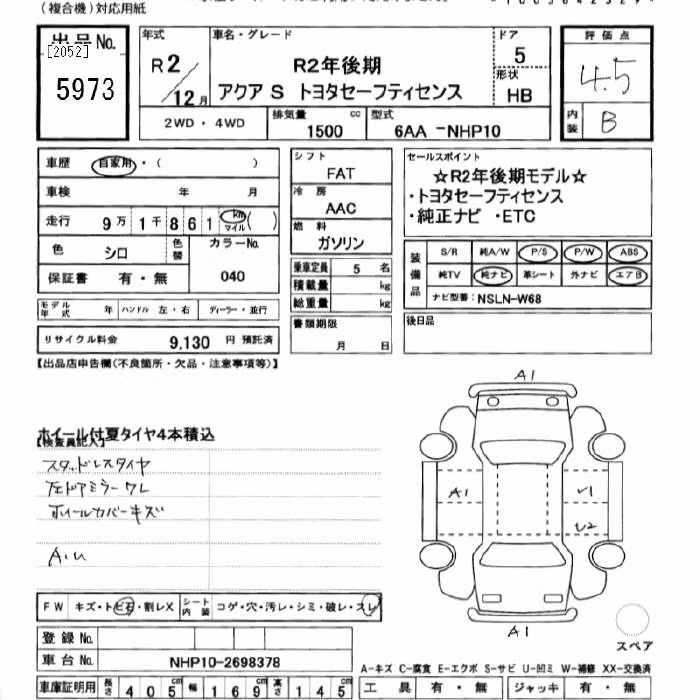 (複合機)対応用紙
出品No.
[2052]
5973
年式
R2/12月
車名・グレード
R2年後期
アクア S トヨタセーフティセンス
ドア
5
形状
HB
評価点
4.5
内装
B
2WD・4WD
排気量
1500 cc
型式
6AA -NHP10
車歴 自家用・( )
車検 年 月
走行 9万1千861 km マイル ( )
色 シロ
色替
カラーNo.
040
保証書 有・無
モデル年式 年 ハンドル 左・右 ディーラー・並行
リサイクル料金 9,130 円 預託済
シフト
FAT
冷房
AAC
燃料
ガソリン
乗車定員 5 名
積載量 kg
総重量 kg
書類期限
月 日
セールスポイント
☆R2年後期モデル☆
・トヨタセーフティセンス
・純正ナビ ・ETC
装備品
S/R 純A/W P/S P/W ABS
純TV 純ナビ 革シート 外ナビ エアB
ナビ型番: NSLN-W68
後日品
【出品店申告欄(不良箇所・欠品・注意事項等)】
ホイール付夏タイヤ4本積込
【検査員記入】
スタッドレスタイヤ
左ドアミラーワレ
ホイールカバーキズ
A.U
A1
A1
U1
U2
A1
スペア
FW キズ・トビ石・割レX シート内装 コゲ・穴・汚レ・シミ・破レ・スレ
登録No.
車台No. NHP10-2698378
車庫証明用 長さ 405cm 幅 169cm 高さ 145cm
A-キズ C-腐食 E-エクボ S-サビ U-凹ミ W-補修 XX-交換済
工具 有・無 ジャッキ 有・無